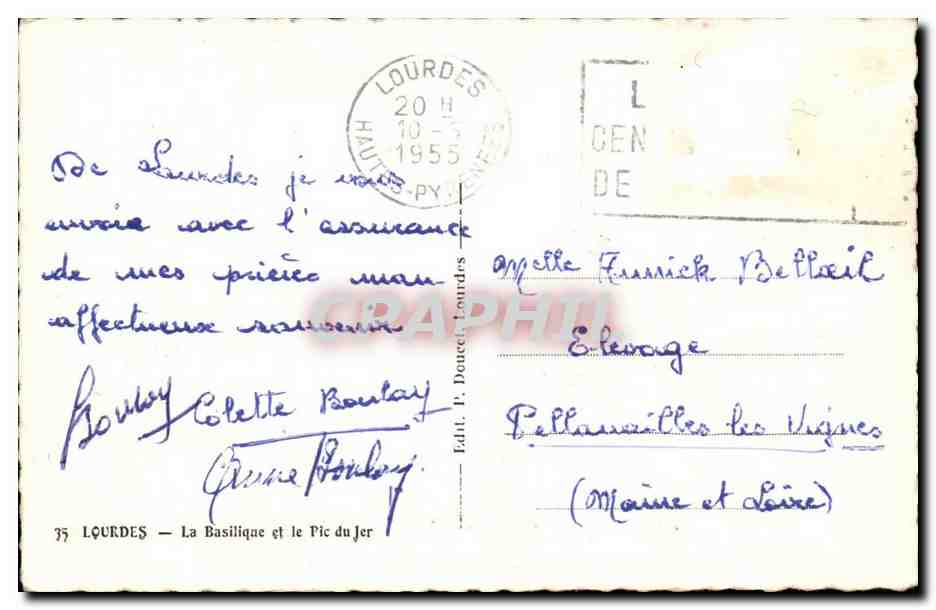 LOURDES
20 H
10-5
1955
HAUTES-PYRENEES
L
CEN
DE
De Lourdes je vous
envoie avec l'assurance
de mes prières mon
affectueux souvenir
Boulay Colette Boulay
Anne Boulay.
Melle Annick Bellœil
Elevage
Pellouailles les Vignes
(Maine et Loire)
Edit. P. Doucet, Lourdes
CRAPHIL
35 LOURDES — La Basilique et le Pic du Jer